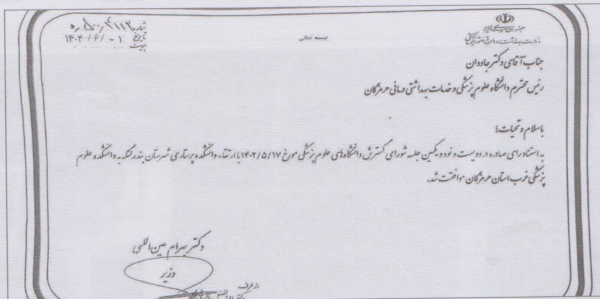 بسمه تعالی
شماره
تاریخ ۱۴۰۲/۶/۰۱
پیوست
جناب آقای دکتر جاودان
رئیس محترم دانشگاه علوم پزشکی و خدمات بهداشتی درمانی هرمزگان
باسلام و تحیات؛
به استناد رای صادره در دویست و نود و یکمین جلسه شورای گسترش دانشگاه‌های علوم پزشکی مورخ ۱۴۰۲/۵/۱۷ با ارتقاء دانشکده پرستاری شهرستان بندر لنگه به دانشکده علوم
پزشکی غرب استان هرمزگان موافقت شد.
دکتر بهرام عین اللهی
وزیر
از طرف